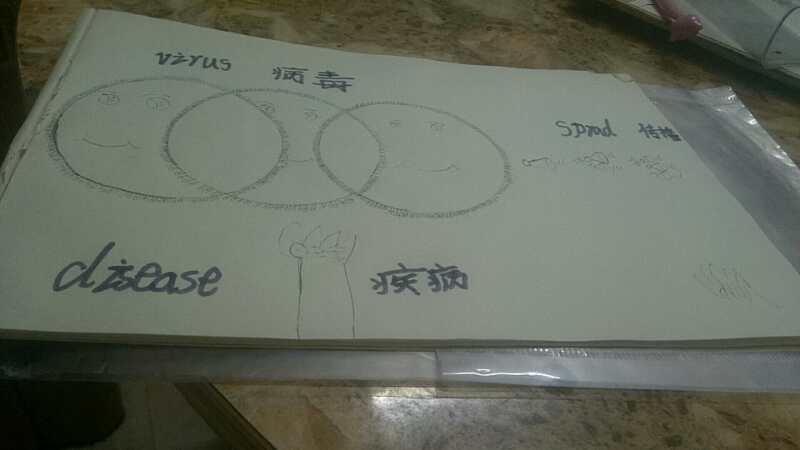 virus 病毒
spread 传播
disease 疾病